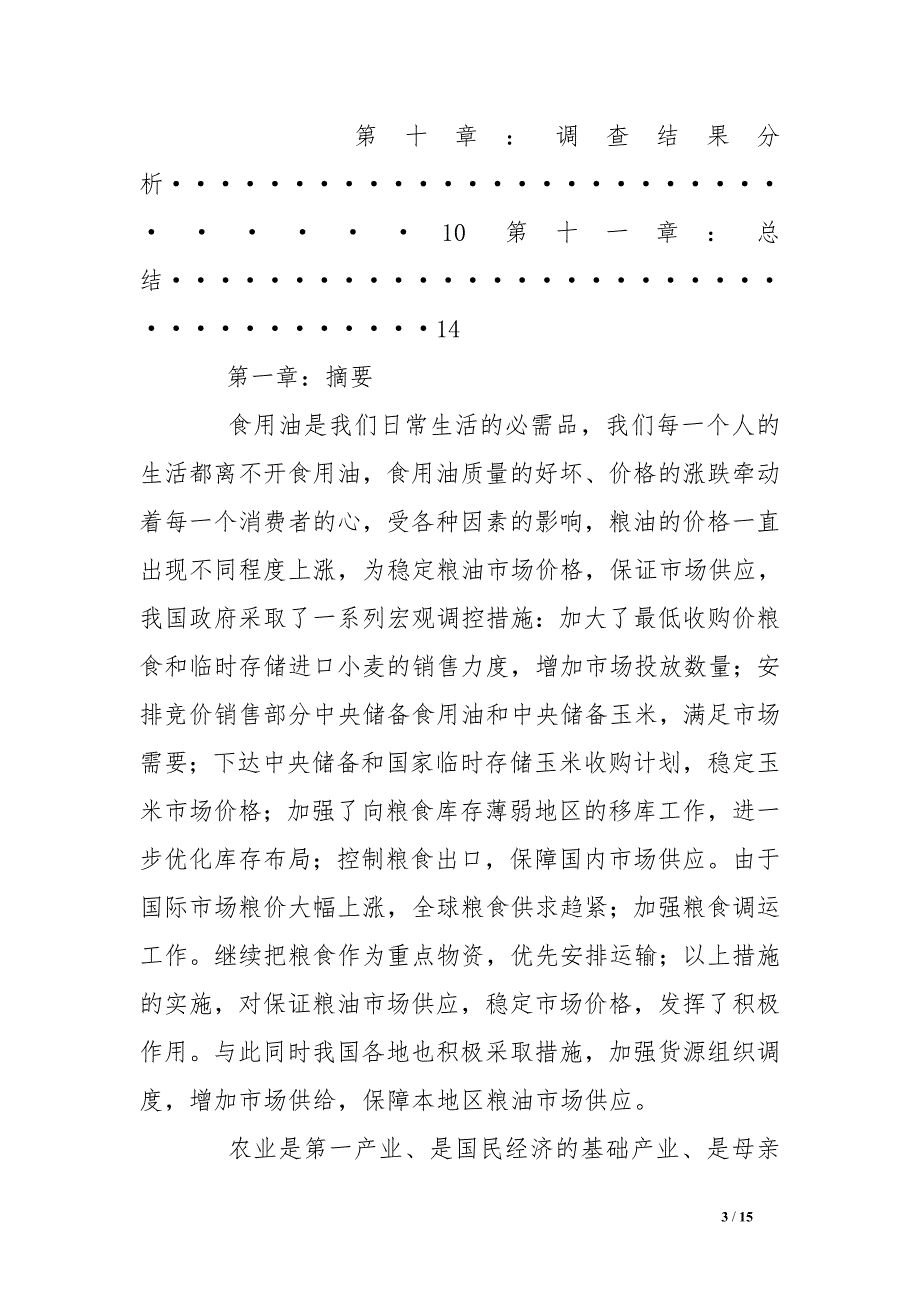 第十章：调查结果分
析·························
······10 第十一章：总
结·························
············14
第一章：摘要
食用油是我们日常生活的必需品，我们每一个人的
生活都离不开食用油，食用油质量的好坏、价格的涨跌牵动
着每一个消费者的心，受各种因素的影响，粮油的价格一直
出现不同程度上涨，为稳定粮油市场价格，保证市场供应，
我国政府采取了一系列宏观调控措施：加大了最低收购价粮
食和临时存储进口小麦的销售力度，增加市场投放数量；安
排竞价销售部分中央储备食用油和中央储备玉米，满足市场
需要；下达中央储备和国家临时存储玉米收购计划，稳定玉
米市场价格；加强了向粮食库存薄弱地区的移库工作，进一
步优化库存布局；控制粮食出口，保障国内市场供应。由于
国际市场粮价大幅上涨，全球粮食供求趋紧；加强粮食调运
工作。继续把粮食作为重点物资，优先安排运输；以上措施
的实施，对保证粮油市场供应，稳定市场价格，发挥了积极
作用。与此同时我国各地也积极采取措施，加强货源组织调
度，增加市场供给，保障本地区粮油市场供应。
农业是第一产业、是国民经济的基础产业、是母亲
3 / 15